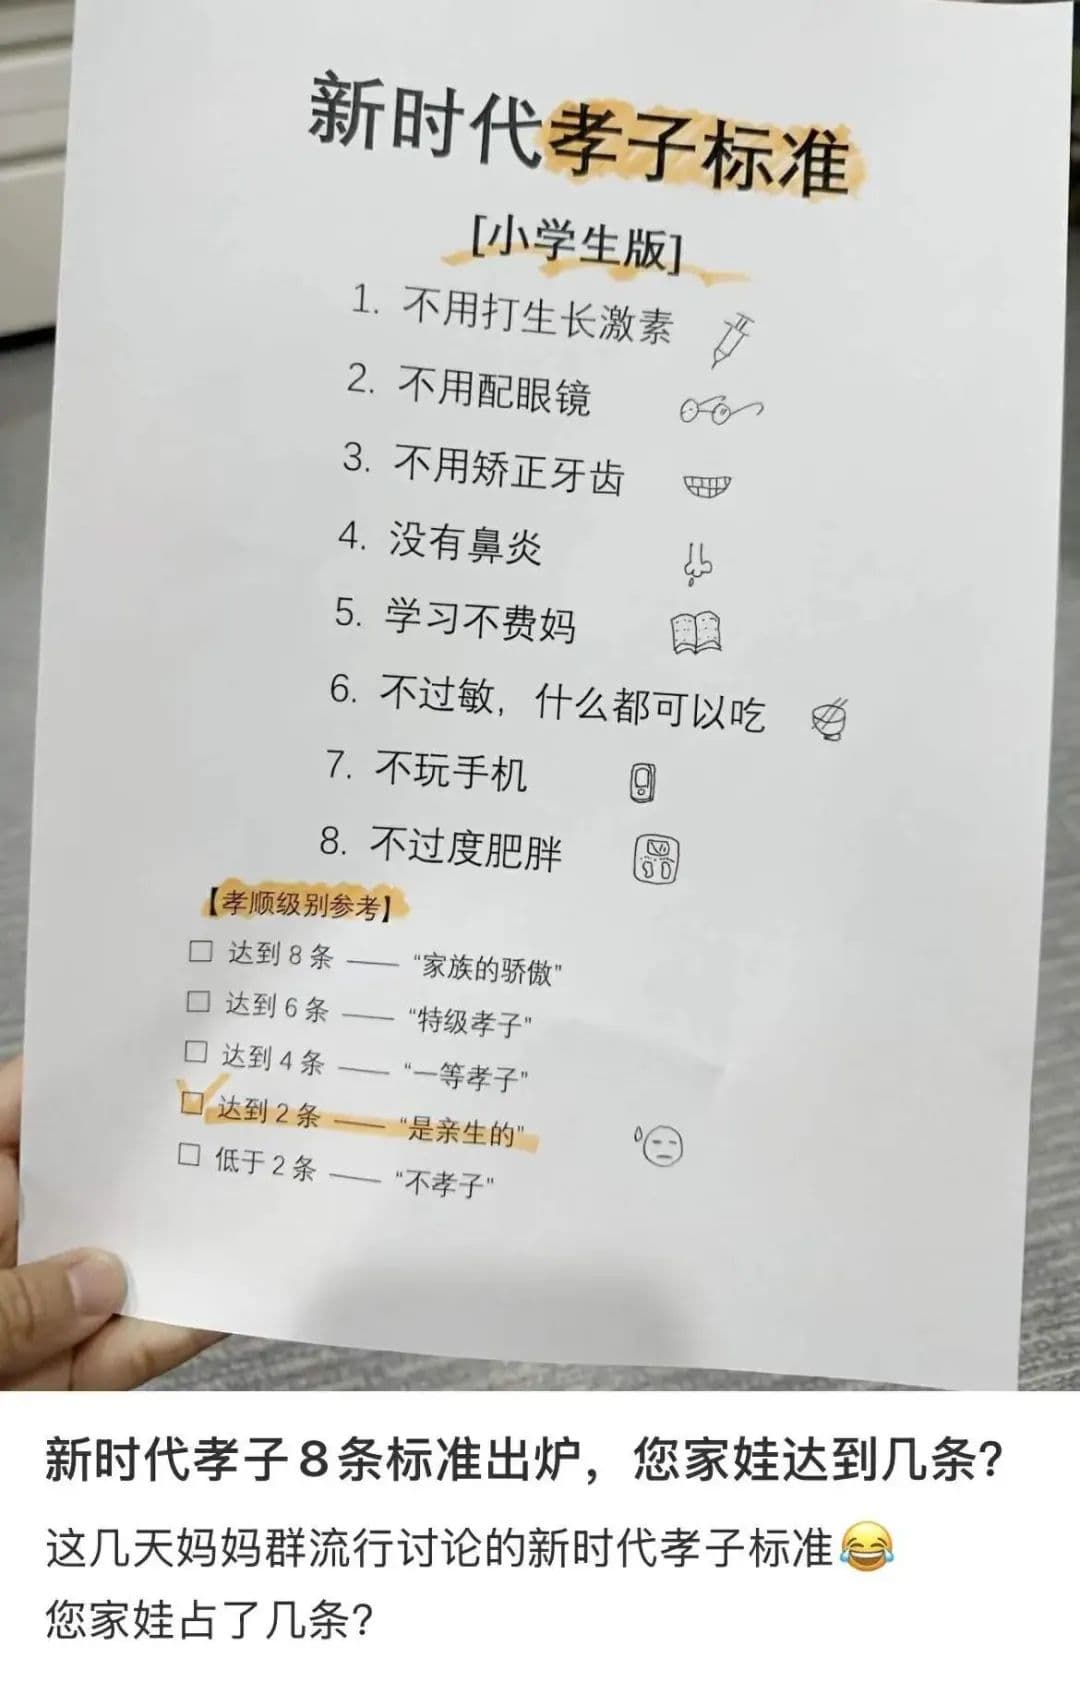 新时代孝子标准
[小学生版]
1. 不用打生长激素
2. 不用配眼镜
3. 不用矫正牙齿
4. 没有鼻炎
5. 学习不费妈
6. 不过敏，什么都可以吃
7. 不玩手机
8. 不过度肥胖
【孝顺级别参考】
□ 达到 8 条 —— “家族的骄傲”
□ 达到 6 条 —— “特级孝子”
□ 达到 4 条 —— “一等孝子”
□ 达到 2 条 —— “是亲生的”
□ 低于 2 条 —— “不孝子”
新时代孝子8条标准出炉，您家娃达到几条？
这几天妈妈群流行讨论的新时代孝子标准😂
您家娃占了几条？